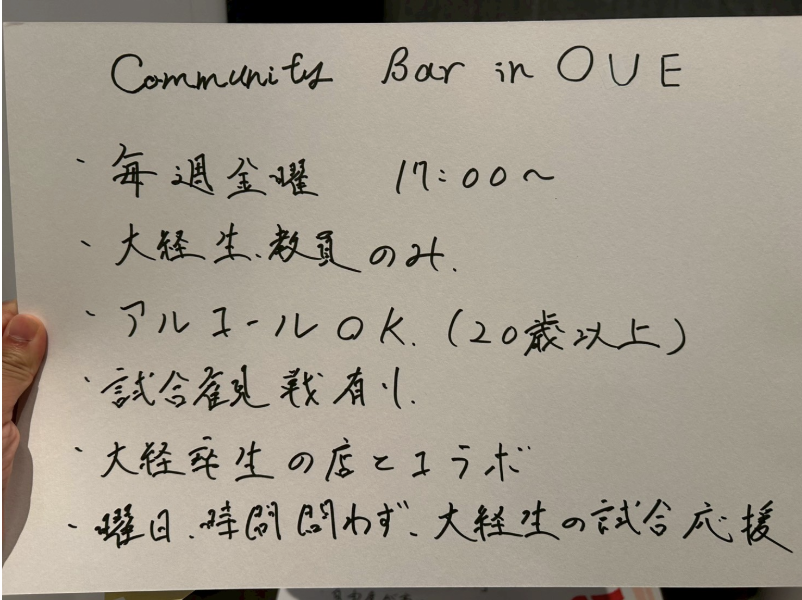 Community Bar in OUE
・毎週金曜 17:00〜
・大経生、教員のみ.
・アルコールOK.(20歳以上)
・試合観戦有り.
・大経卒生の店とコラボ
・曜日、時間問わず、大経生の試合応援